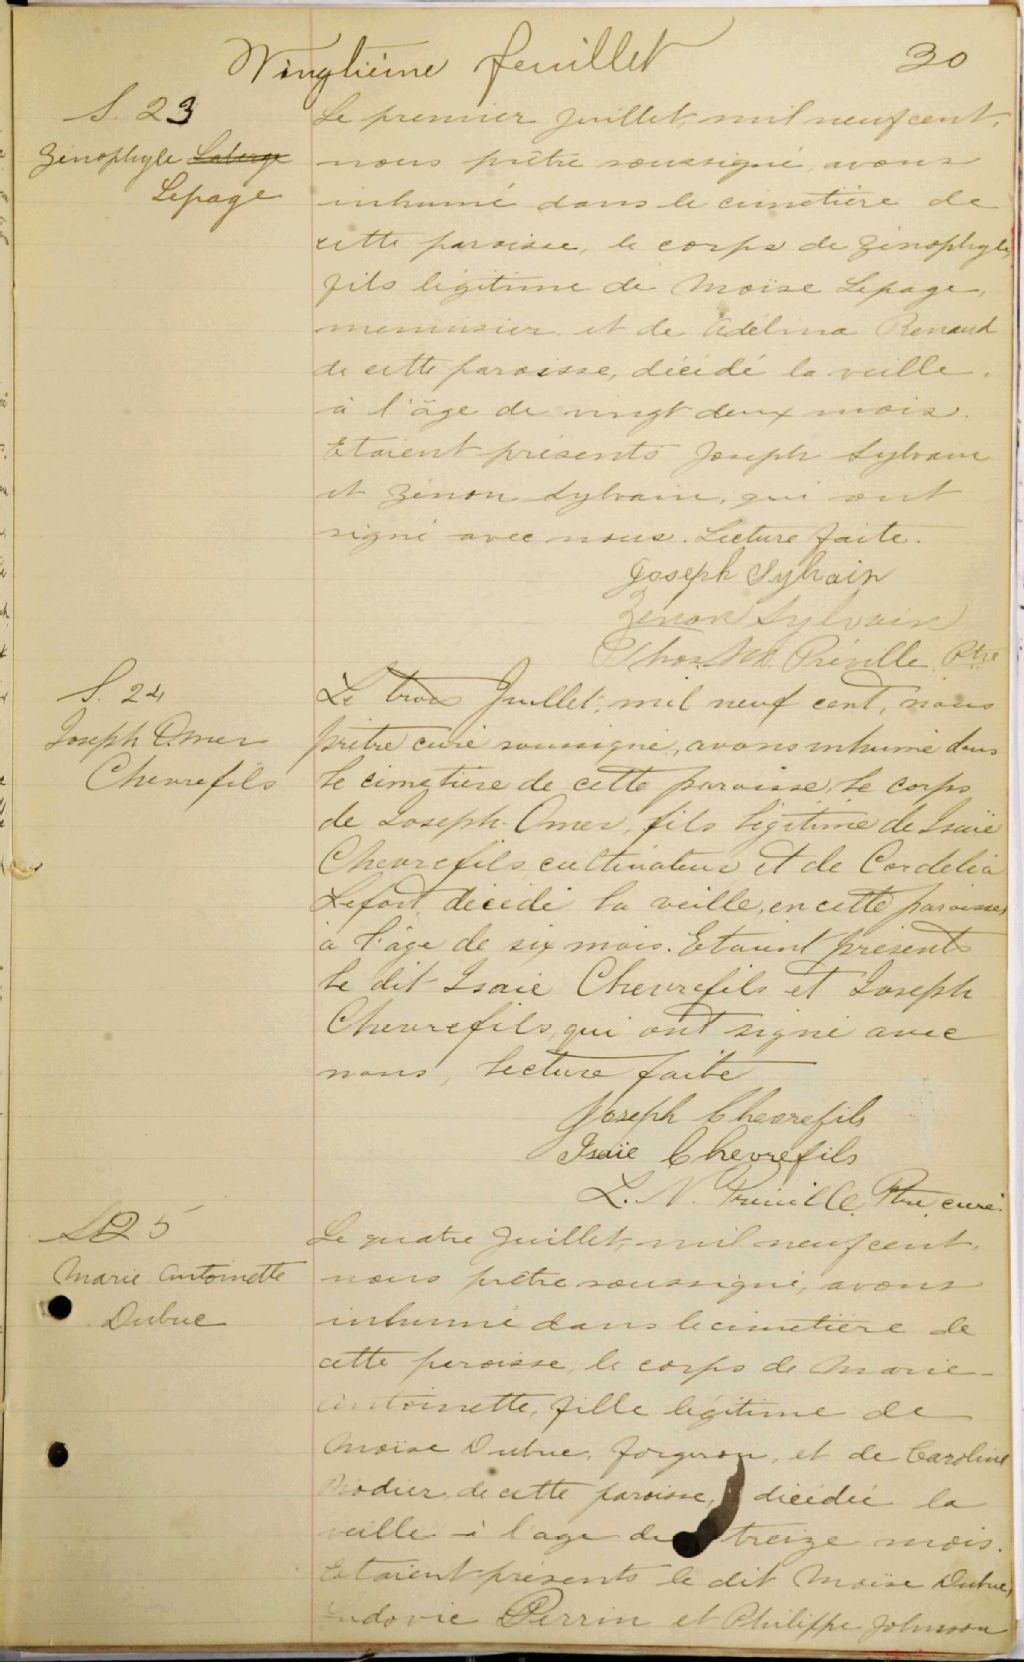 Vingtième feuillet 30
S. 23
Zénophyle Laberge
Lepage
Le premier Juillet, mil neuf cent,
nous prêtre soussigné, avons
inhumé dans le cimetière de
cette paroisse, le corps de Zénophyle,
fils légitime de Moïse Lepage,
menuisier et de Adélina Renaud
de cette paroisse, décédé la veille,
à l'âge de vingt deux mois.
Etaient présents Joseph Sylvain
et Zénon Sylvain, qui ont
signé avec nous. Lecture faite.
Joseph Sylvain
Zenon Sylvain
Préville Ptre
S. 24
Joseph Omer
Chevrefils
Le trois Juillet, mil neuf cent, nous
prêtre curé soussigné, avons inhumé dans
le cimetière de cette paroisse, le corps
de Joseph-Omer, fils légitime de Isaïe
Chevrefils, cultivateur et de Cordelia
Lefort, décédé la veille, en cette paroisse,
à l'âge de six mois. Etaient présents
le dit Isaie Chevrefils et Joseph
Chevrefils, qui ont signé avec
nous, lecture faite
Joseph Chevrefils
Isaïe Chevrefils
L. N. Préville Ptre curé.
S 25
Marie Antoinette
Dubuc
Le quatre Juillet, mil neuf cent,
nous prêtre soussigné, avons
inhumé dans le cimetière de
cette paroisse, le corps de Marie-
Antoinette, fille légitime de
Moïse Dubuc, forgeron, et de Caroline
Rodier, de cette paroisse, décédée la
veille à l'age de treize mois.
Etaient présents le dit Moïse Dubuc,
Ludovic Perrin et Philippe Johnson